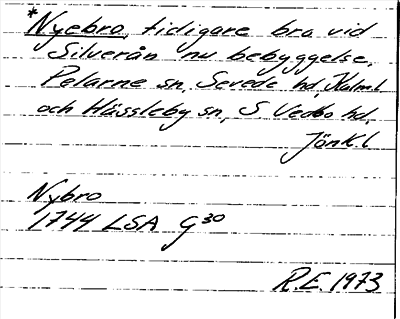 *Nyebro, tidigare bro vid
Silverån nu bebyggelse,
Pelarne sn, Sevede hd Kalm.l
och Hässleby sn, S Vedbo hd.
Jönk.l
Nybro
1744 LSA G30
R.E. 1973